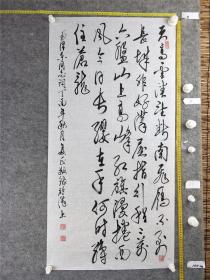 天高雲淡望断南飛雁不到
長城非好漢屈指行程二万
六盤山上高峰紅旗漫捲西
風今日長纓在手何時縛
住蒼龍
毛澤東同志詞丁酉年秋月